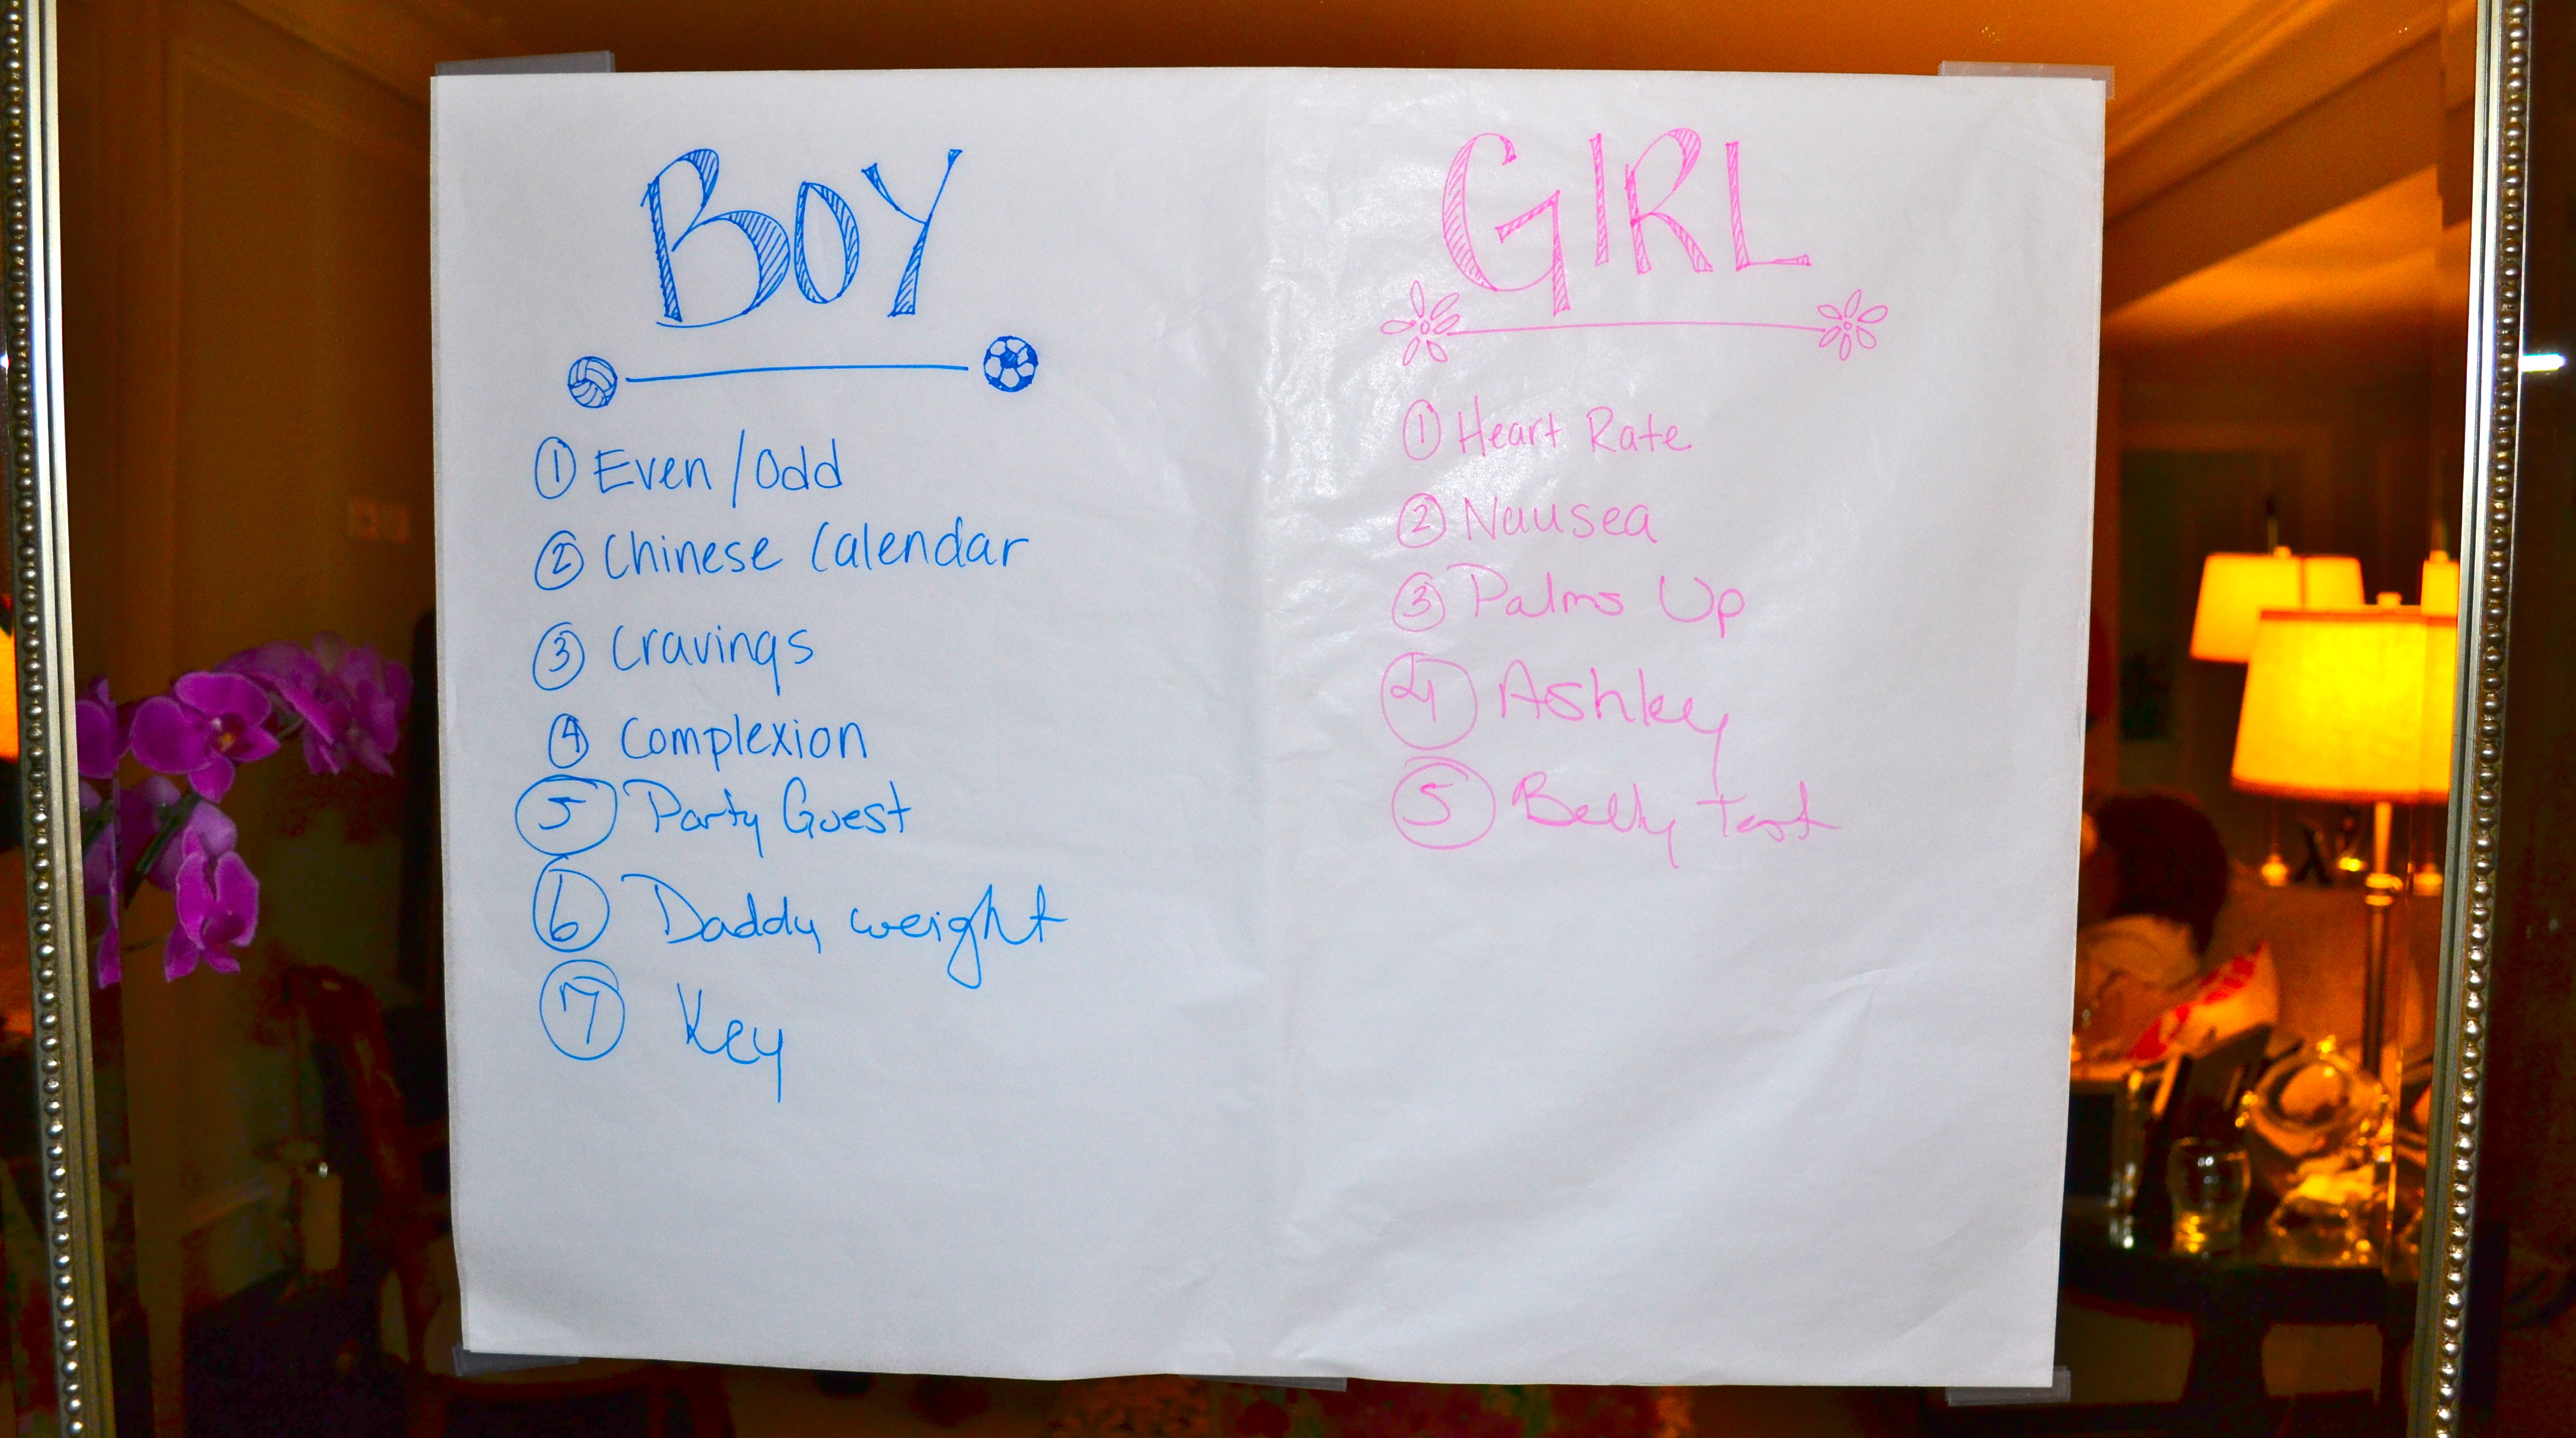 BOY
① Even/Odd
② Chinese Calendar
③ Cravings
④ Complexion
⑤ Party Guest
⑥ Daddy weight
⑦ Key
GIRL
① Heart Rate
② Nausea
③ Palms Up
④ Ashley
⑤ Belly test